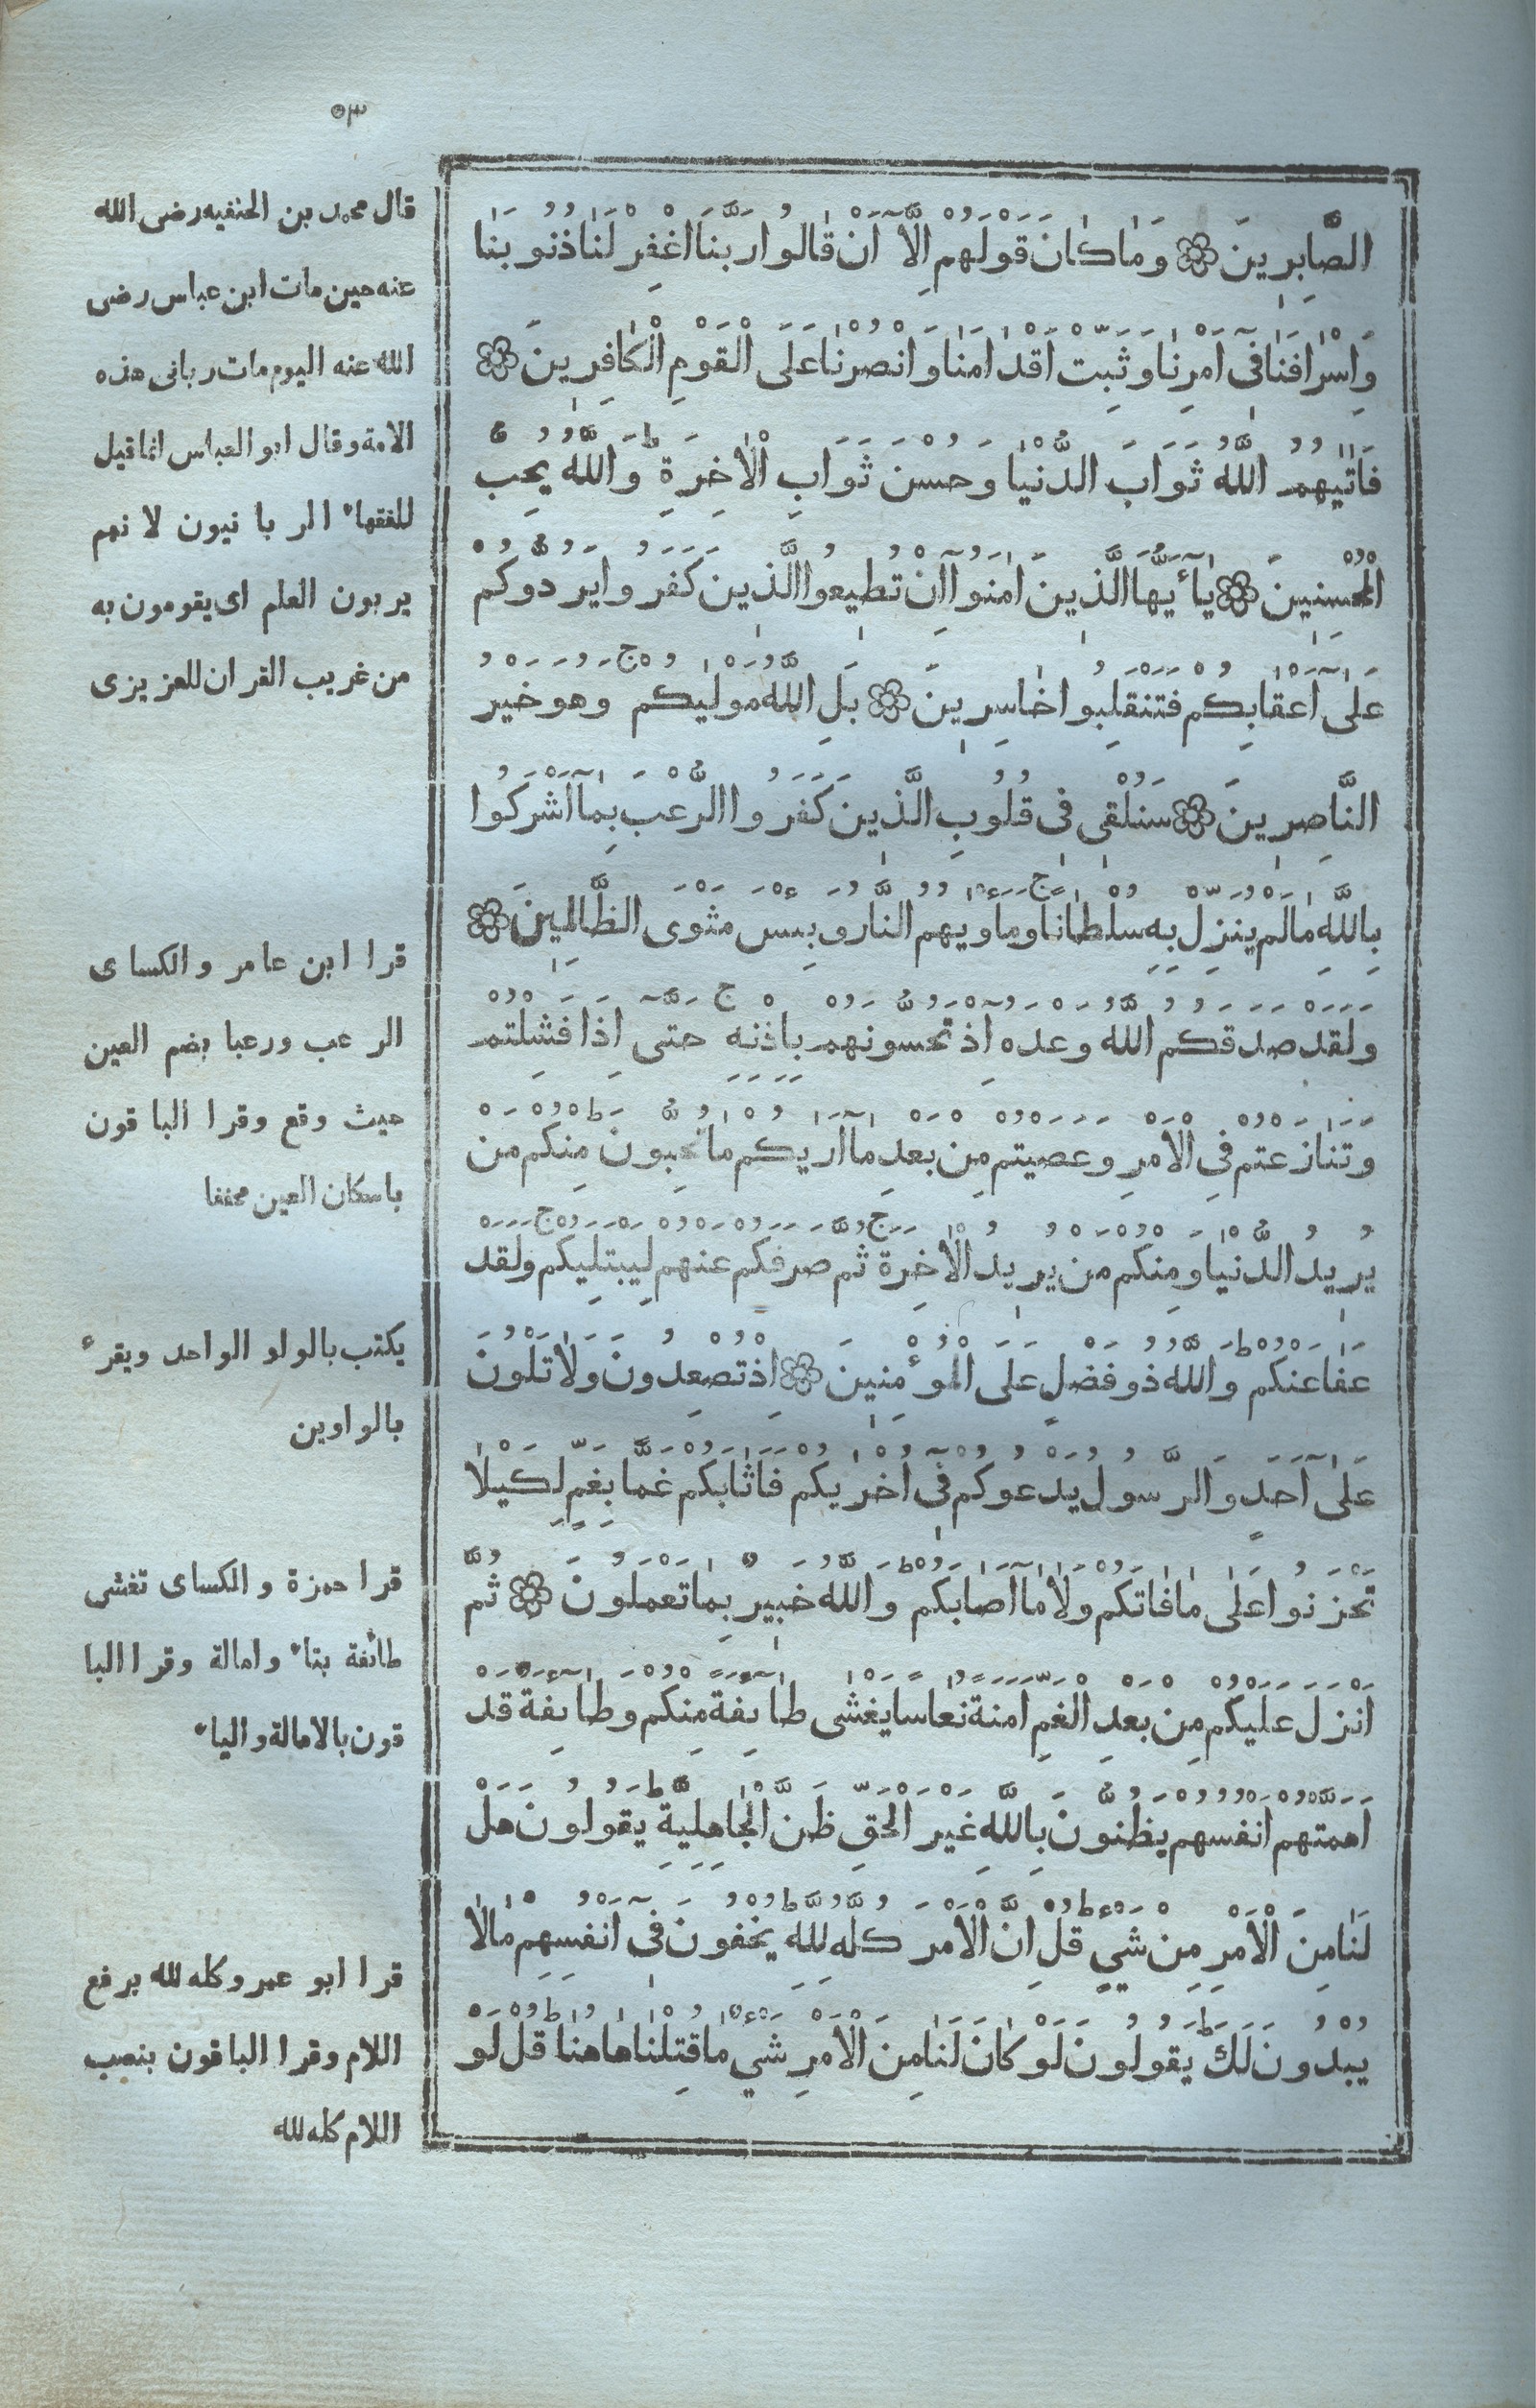 ٥٣
الصَّابِرِينَ ۞ وَمَا كَانَ قَوْلَهُمْ اِلَّآ اَنْ قَالُوا رَبَّنَا اغْفِرْ لَنَا ذُنُوبَنَا
وَاِسْرَافَنَا فِىٓ اَمْرِنَا وَثَبِّتْ اَقْدَامَنَا وَانْصُرْنَا عَلَى الْقَوْمِ الْكَافِرِينَ ۞
فَاٰتٰيهُمُ اللّٰهُ ثَوَابَ الدُّنْيَا وَحُسْنَ ثَوَابِ الْاٰخِرَةِ ط وَاللّٰهُ يُحِبُّ
الْمُحْسِنِينَ ۞ يَآ ءَيُّهَا الَّذِينَ اٰمَنُوآ اِنْ تُطِيعُوا الَّذِينَ كَفَرُوا يَرُدُّوكُمْ
عَلٰىٓ اَعْقَابِكُمْ فَتَنْقَلِبُوا خَاسِرِينَ ۞ بَلِ اللّٰهُ مَوْلٰيكُمْ ج وَهُوَ خَيْرُ
النَّاصِرِينَ ۞ سَنُلْقِى فِى قُلُوبِ الَّذِينَ كَفَرُوا الرُّعْبَ بِمَآ اَشْرَكُوا
بِاللّٰهِ مَا لَمْ يُنَزِّلْ بِهِ سُلْطَانًا ج وَمَاْوٰيهُمُ النَّارُ وَبِئْسَ مَثْوَى الظَّالِمِينَ ۞
وَلَقَدْ صَدَقَكُمُ اللّٰهُ وَعْدَهُ اِذْ تَحُسُّونَهُمْ بِاِذْنِهِ ج حَتّٰىٓ اِذَا فَشِلْتُمْ
وَتَنَازَعْتُمْ فِى الْاَمْرِ وَعَصَيْتُمْ مِنْ بَعْدِ مَآ اَرٰيكُمْ مَا تُحِبُّونَ ط مِنْكُمْ مَنْ
يُرِيدُ الدُّنْيَا وَمِنْكُمْ مَنْ يُرِيدُ الْاٰخِرَةَ ج ثُمَّ صَرَفَكُمْ عَنْهُمْ لِيَبْتَلِيَكُمْ ج وَلَقَدْ
عَفَا عَنْكُمْ ط وَاللّٰهُ ذُو فَضْلٍ عَلَى الْمُوءْمِنِينَ ۞ اِذْ تُصْعِدُونَ وَلَا تَلْوُنَ
عَلٰىٓ اَحَدٍ وَالرَّسُولُ يَدْعُوكُمْ فِىٓ اُخْرٰيكُمْ فَاَثَابَكُمْ غَمًّا بِغَمٍّ لِكَيْلَا
تَحْزَنُوا عَلٰى مَا فَاتَكُمْ وَلَا مَآ اَصَابَكُمْ ط وَاللّٰهُ خَبِيرٌ بِمَا تَعْمَلُونَ ۞ ثُمَّ
اَنْزَلَ عَلَيْكُمْ مِنْ بَعْدِ الْغَمِّ اَمَنَةً نُعَاسًا يَغْشٰى طَآئِفَةً مِنْكُمْ وَطَآئِفَةٌ قَدْ
اَهَمَّتْهُمْ اَنْفُسُهُمْ يَظُنُّونَ بِاللّٰهِ غَيْرَ الْحَقِّ ظَنَّ الْجَاهِلِيَّةِ ط يَقُولُونَ هَلْ
لَنَا مِنَ الْاَمْرِ مِنْ شَىْءٍ ط قُلْ اِنَّ الْاَمْرَ كُلَّهُ لِلّٰهِ ط يُخْفُونَ فِىٓ اَنْفُسِهِمْ مَا لَا
يُبْدُونَ لَكَ ط يَقُولُونَ لَوْ كَانَ لَنَا مِنَ الْاَمْرِ شَىْءٌ مَا قُتِلْنَا هَاهُنَا ط قُلْ لَوْ
قال محمد بن الحنفيه رضى الله
عنه حين مات ابن عباس رضى
الله عنه اليوم مات ربانى هذه
الامة وقال ابو العباس انما قيل
للفقهاء الربا نيون لا نهم
يربون العلم اى يقومون به
من غريب القران للعزيزى
قرا ابن عامر والكساى
الرعب ورعبا بضم العين
حيث وقع وقرا البا قون
باسكان العين مخففا
يكتب بالواو الواحد ويقرء
بالواوين
قرا حمزة والكساى تغشى
طائفة بتاء وامالة وقرا البا
قون بالامالة والياء
قرا ابو عمرو كله لله برفع
اللام وقرا الباقون بنصب
اللام كله لله